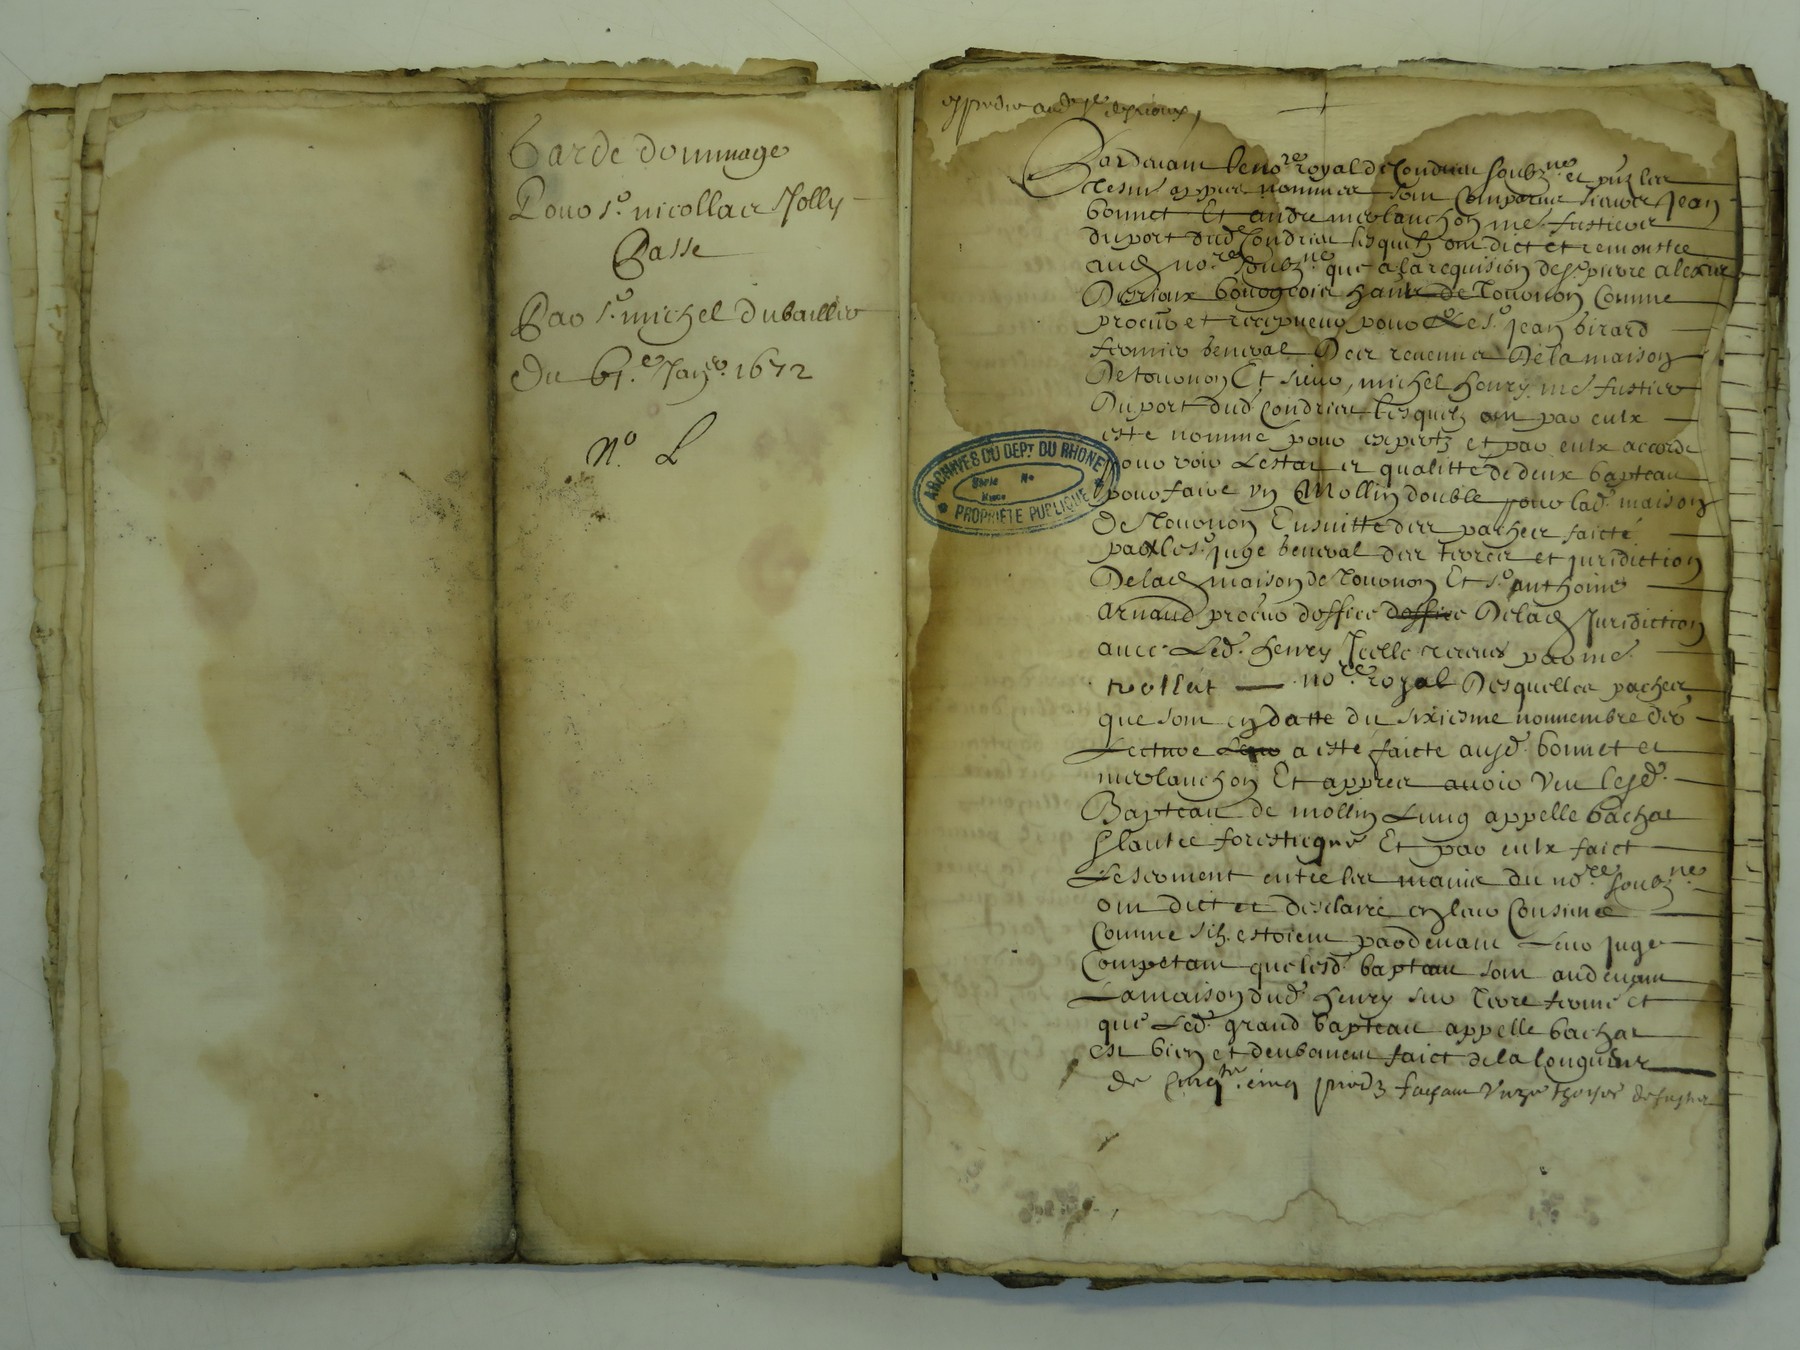 Garde dommage
Pour sr. nicollas Jolly
Passe
Par sr. michel dubaillier
Du 6e. Janer. 1672
No. L
Pardevant le nore royal de Condrieu soubzne et pnts les
tesmo appres nommes sont comparus sieurs Jean
bonnet Et andre merlanchon mes fustiers
du port dud Condrieu lesquels ont dict et remonstre
aud nore soubzne que a la requision de sr pierre alexandre
Derioux bourgeois hant de Tournon Comme
procur et recepueur pour le sr. Jean birard
fermier general Des reuenus De la maison
De tournon Et sieur michel henry me fustier
Du port dud Condrieu lesquels ont par eulx
este nomme pour expertz et par eulx accorde
pour voir Lestat et qualitte de deux bapteau
pour faire vn Mollin double pour lad. maison
De Tournon Ensuitte des paches faicte
par le sr. juge general des terres et juridiction
De lad maison de Tournon Et sr. anthoine
arnaud procur doffice doffice De lad Juridiction
auec Led. henry Icelle receues par me
trollat nore royal Desquelles paches
que sont en datte du sixiesme nouuembre der
Lecture a este faicte ausd. bonnet et
merlanchon Et appres auoir Veu lesd.
Bapteau de mollin Lung appelle bachat
Et lautre foresticque Et par eulx faict
Le serment entre les mains du nore soubzne
ont dict et desclaré en leur Consience
Comme silz estoient pardeuant Leur juge
Competant que lesd. bapteau sont au deuant
La maison dud. henry sur terre ferme et
que Led. grand bapteau appelle bachat
est bien et deubement faict de la longueur
de Cinqte. cinq piedz faisant Unze thoyse
ARCHIVES DU DEPT. DU RHONE
Série No
PROPRIÉTÉ PUBLIQUE